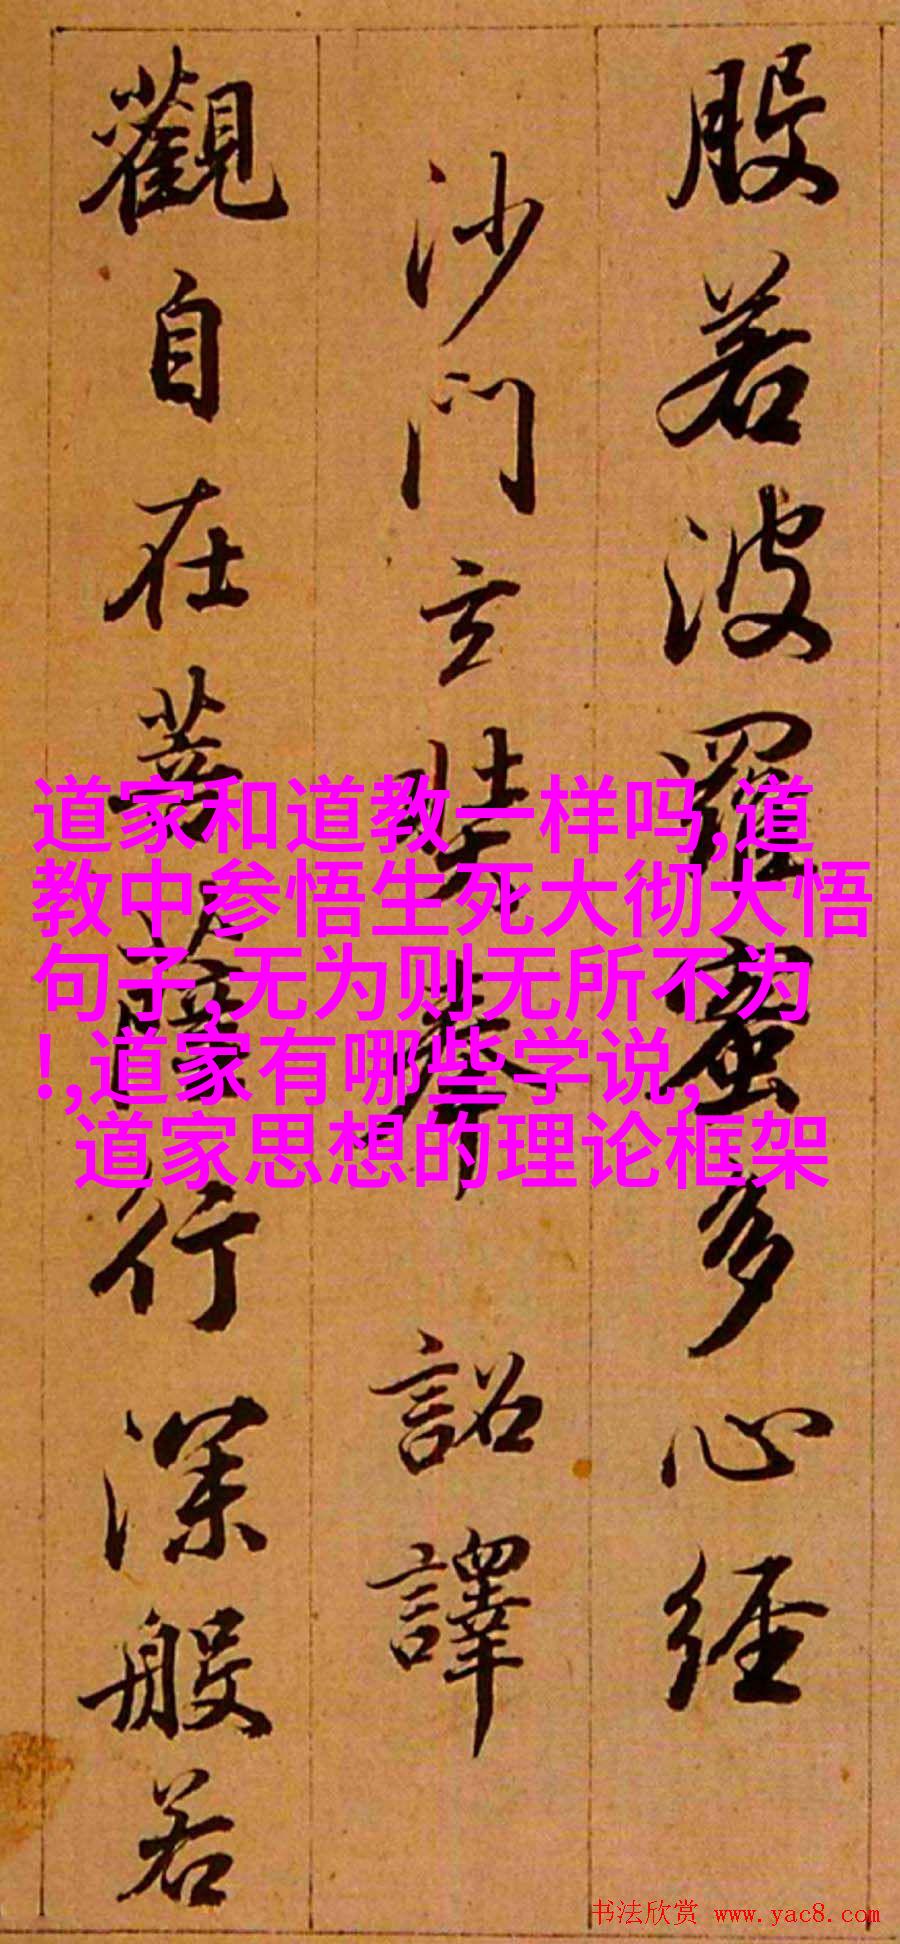 般若波羅蜜多心經
沙門玄奘奉 詔譯
觀自在菩薩行深般若
道家和道教一样吗,道
教中参悟生死大彻大悟
句子,无为则无所不为
!,道家有哪些学说,
道家思想的理论框架
书法欣赏 www.yac8.com